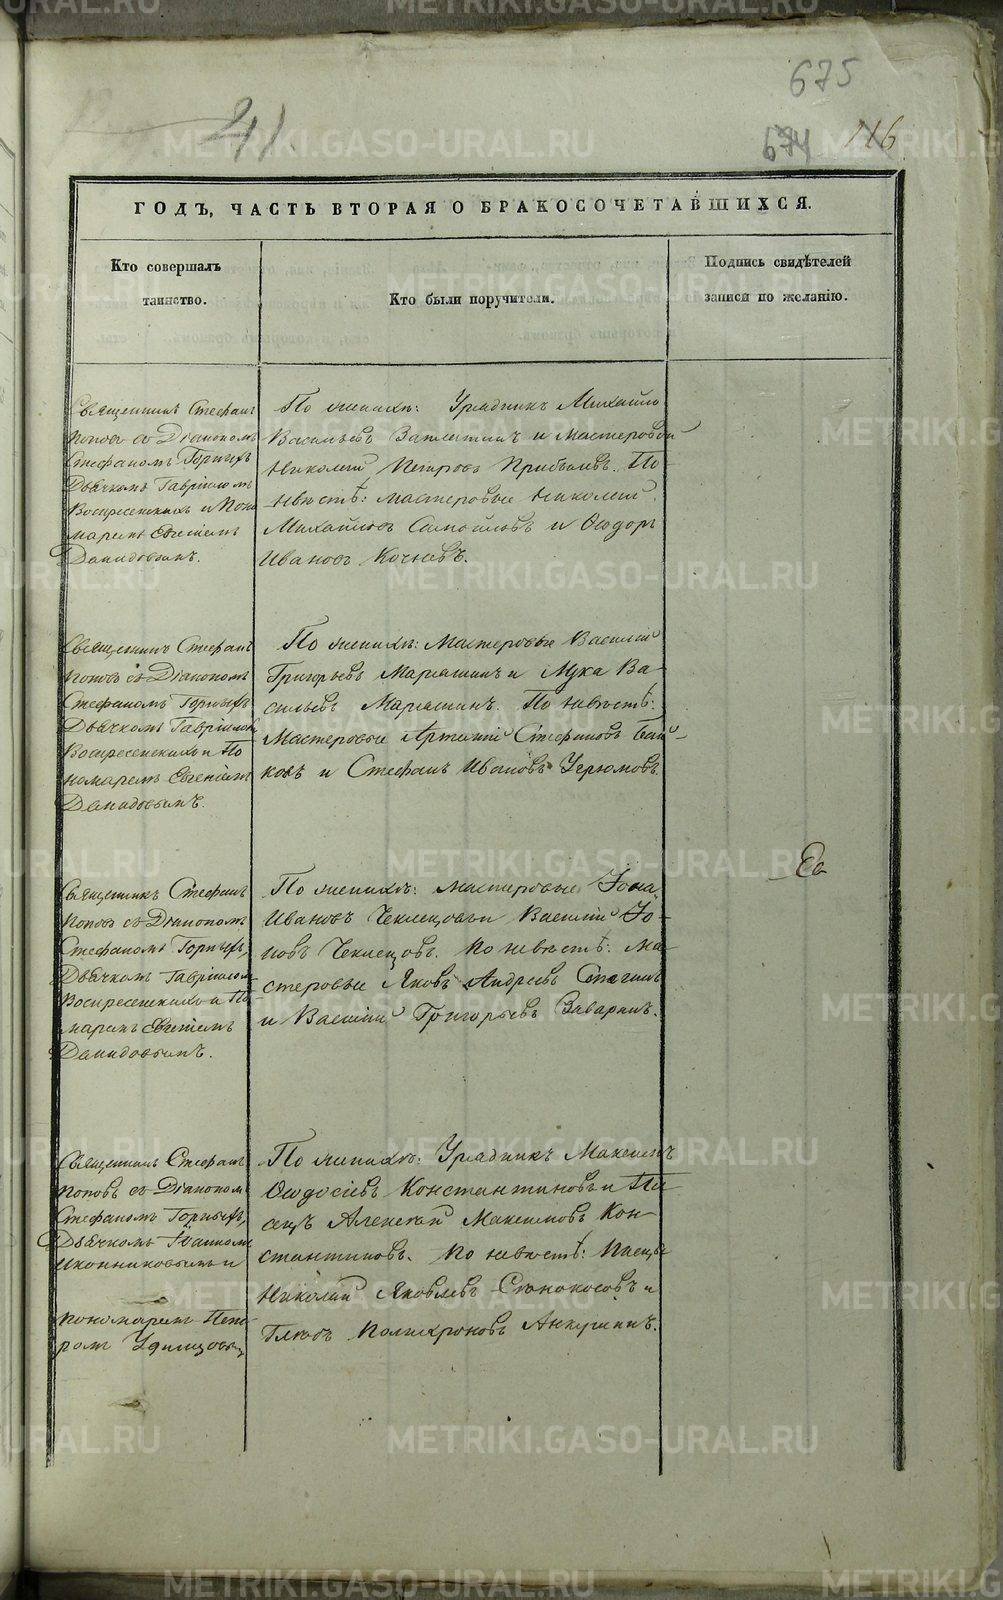 675
41.
674 116
ГОДЪ, ЧАСТЬ ВТОРАЯ О БРАКОСОЧЕТАВШИХСЯ.
Кто совершалъ
таинство.
Кто были поручители.
Подпись свидѣтелей
записи по желанію.
Священникъ Стефанъ
Поповъ съ Діакономъ
Стефаномъ Горныхъ
Дьячкомъ Гавріиломъ
Воскресенскихъ и Поно
маремъ Евгеніемъ
Давидовымъ.
По женихѣ: Урядникъ Михайло
Васильевъ Заплатинъ и Мастеровой
Николай Петровъ Прибылевъ. По
невѣстѣ: мастеровые Николай
Михайловъ Самойловъ и Ѳедоръ
Ивановъ Кочневъ.
Священникъ Стефанъ
Поповъ съ Діакономъ
Стефаномъ Горныхъ
Дьячкомъ Гавріиломъ
Воскресенскихъ и По
номаремъ Евгеніемъ
Давидовымъ.
По женихѣ: Мастеровые Василій
Григорьевъ и Лука Ва
сильевъ По невѣстѣ:
Мастеровые Артемій Стефановъ Бай
ковъ и Стефанъ Ивановъ Угрюмовъ.
Священникъ Стефанъ
Поповъ съ Діакономъ
Стефаномъ Горныхъ,
Дьячкомъ Гавріиломъ
Воскресенскихъ и По
маремъ Евгеніемъ
Давидовымъ.
По женихѣ: мастеровые Іона
Ивановъ Чеклецовъ и Василій Іо-
новъ Чеклецовъ. По невѣстѣ: Ма-
стеровые Яковъ Андреевъ
и Василій Григорьевъ Заваринъ.
Священникъ Стефанъ
Поповъ съ Діакономъ
Стефаномъ Горныхъ,
Дьячкомъ Іоанномъ
Иконниковымъ и
пономаремъ Пет
ромъ Удинцовымъ
По женихѣ: Урядникъ Максимъ
Ѳедосіевъ Константиновъ и Пи
сецъ Алексѣй Максимовъ Кон-
стантиновъ. По невѣстѣ: Писцы
Николай Яковлевъ Сѣнокосовъ и
Глѣбъ Поликроновъ
METRIKI.GASO-URAL.RU